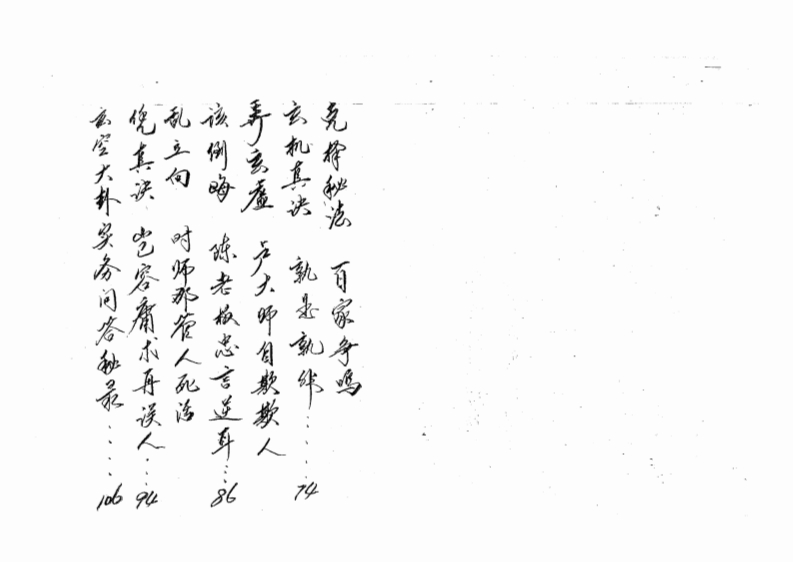 克择秘法 百家争鸣
玄机真决 孰是孰非……74
弄玄虚 卢大师自欺欺人
该倒晦 陈老板忠言逆耳…86
乱立向 时师那管人死活
凭真决 岂容庸术再误人…94
玄空大卦实务问答秘录……106